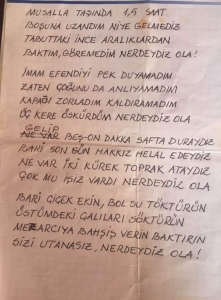 MUSALLA TAŞINDA 1,5 SAAT
BOĞUNA UZANDIM NİYE GELMEDİZ
TABUTTAKİ İNCE ARALIKLARDAN
BAKTIM, GÖREMEDİM NERDEYDİZ OLA!
İMAM EFENDİYİ PEK DUYAMADIM
ZATEN ÇOĞUNU DA ANLIYAMADIM
KAPAĞI ZORLADIM KALDIRAMADIM
ÜÇ KERE ÖSKÜRDÜM NERDEYDİZ OLA
GELİR
NE VAR BEŞ-ON DAKKA SAFTA DURAYDIZ
BARİ SON GÜN HAKKIZ HELAL EDEYDİZ
NE VAR İKİ KÜREK TOPRAK ATAYDIZ
ÇOK MU İŞIZ VARDI NERDEYDİZ OLA
BARİ ÇİÇEK EKİN, BOL SU TÖKTÜRÜN
ÜSTÜMDEKİ GALILARI SÖKTÜRÜN
MEZARCIYA BAHŞIŞ VERİN BAKTIRIN
SİZİ UTANASIZ, NERDEYDİZ OLA!